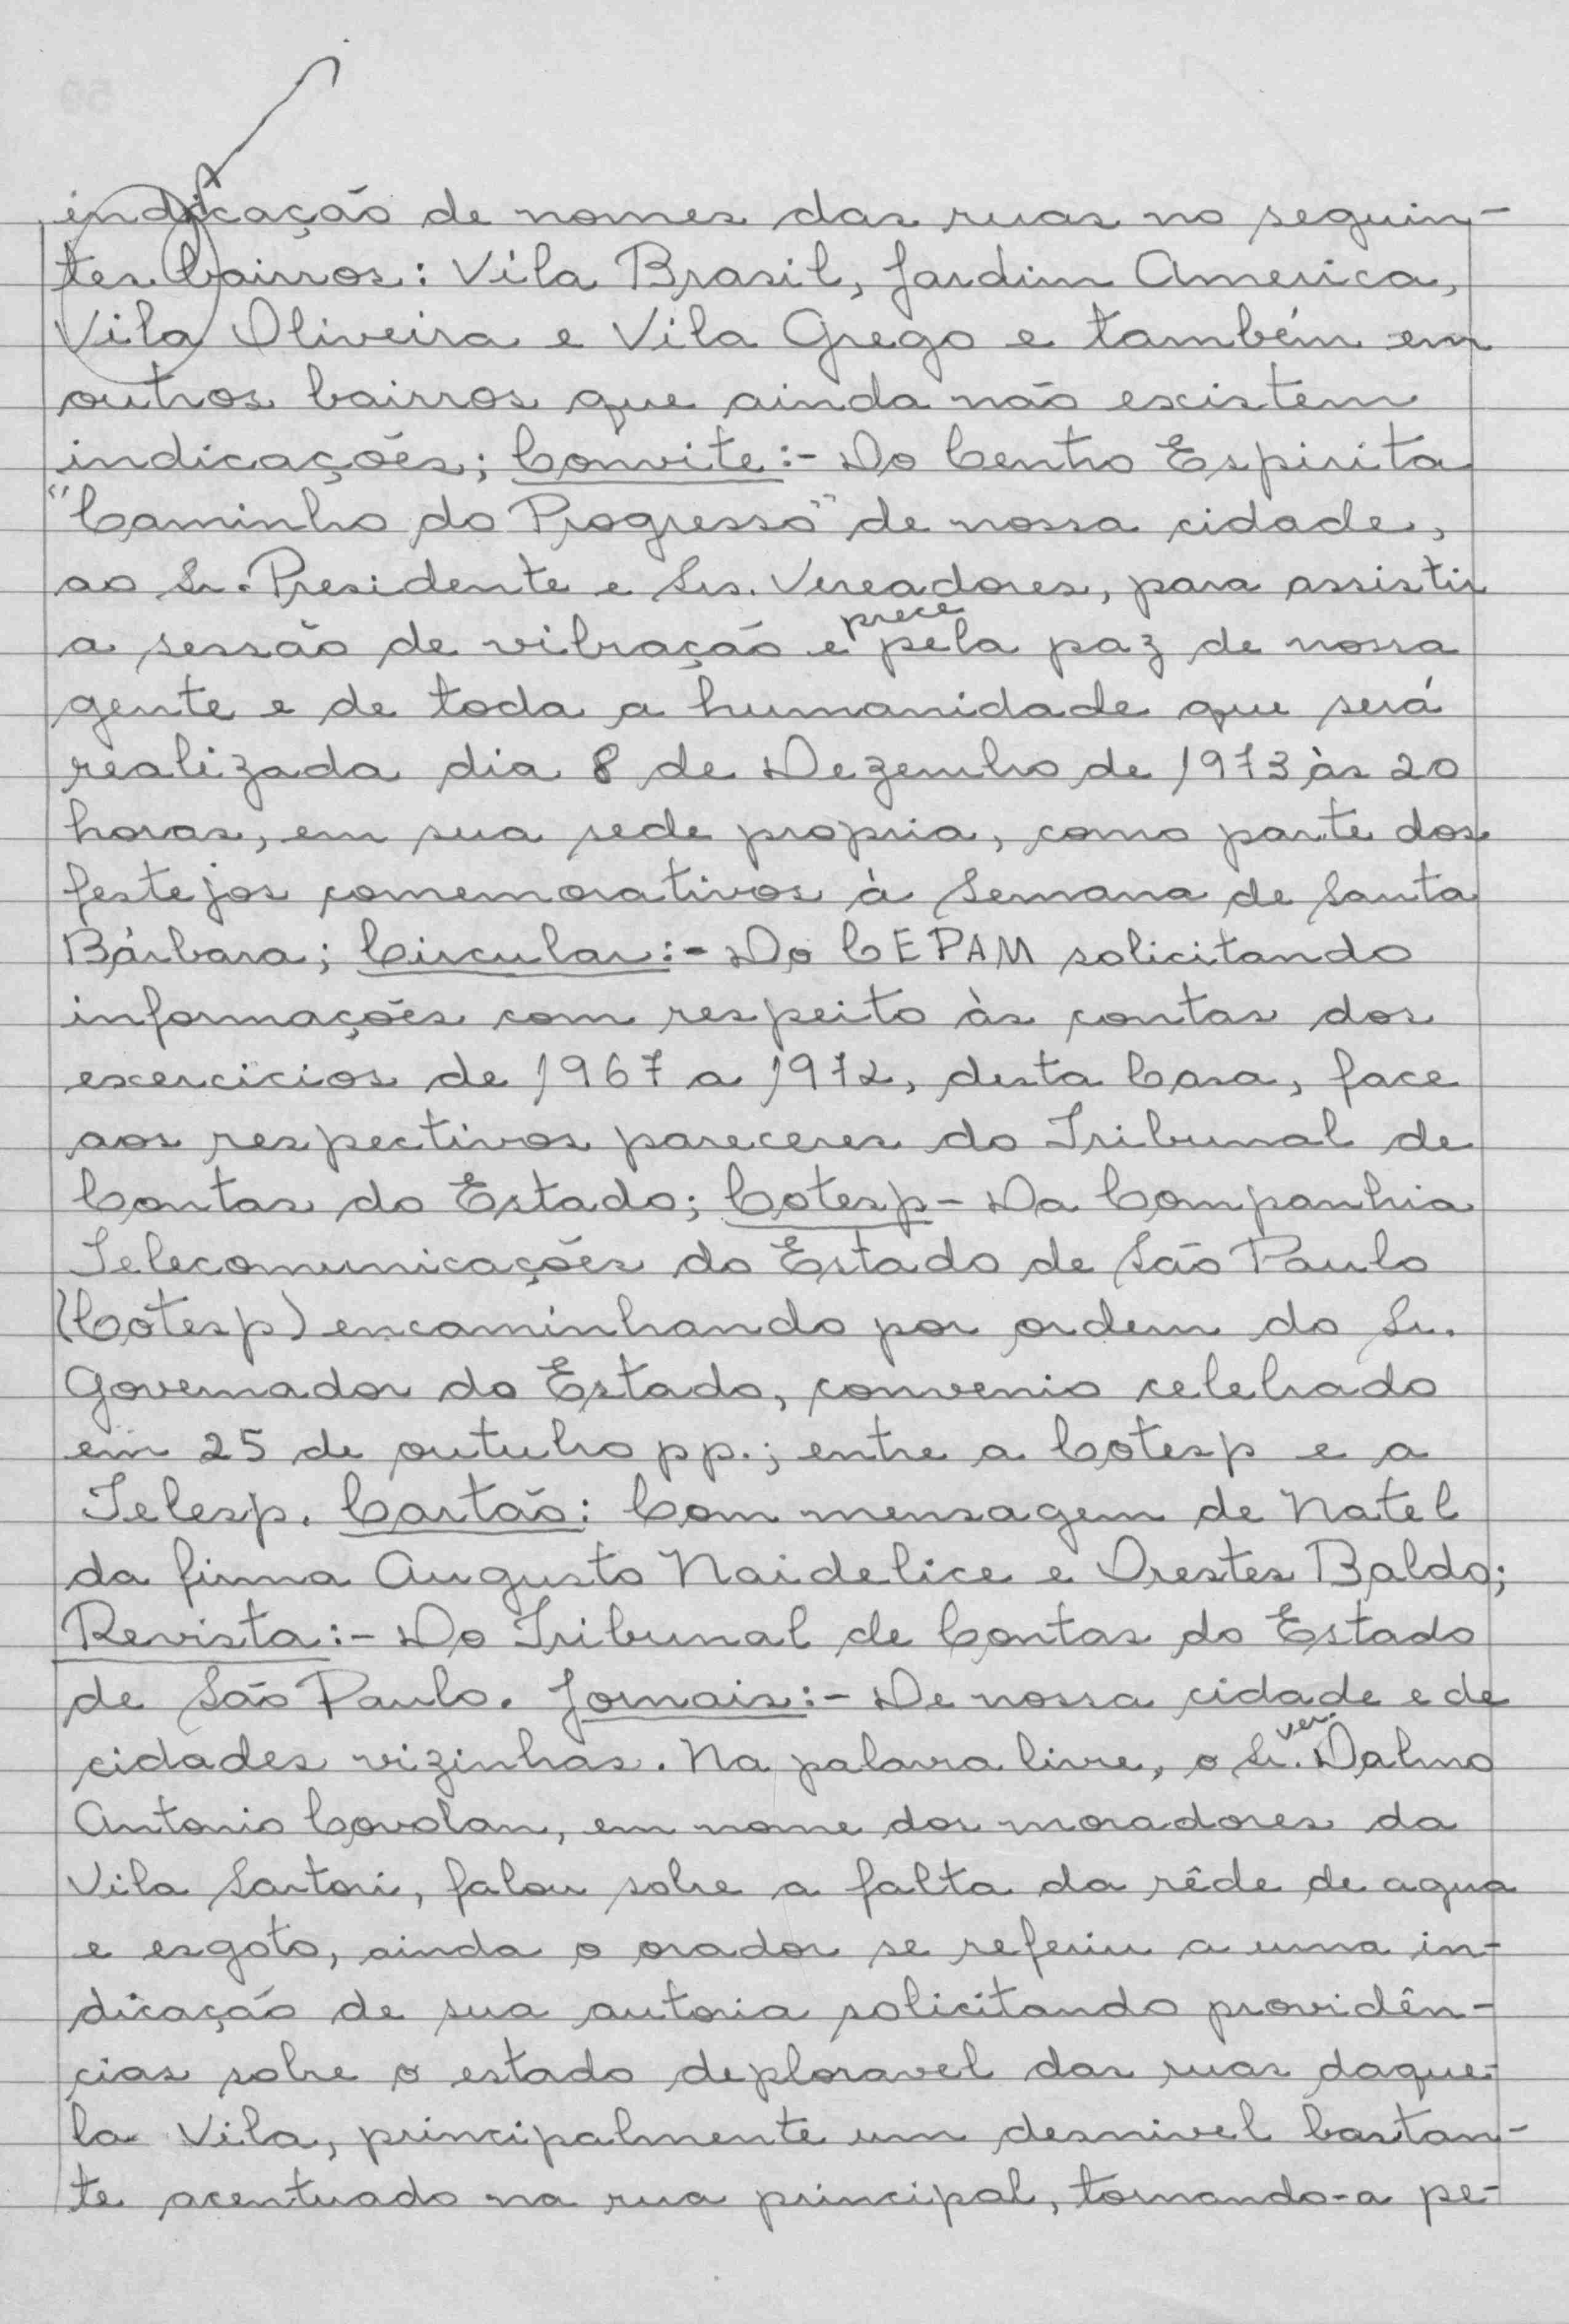 indicação de nomes das ruas no seguin-
tes bairros: Vila Brasil, Jardim America,
Vila Oliveira e Vila Grego e também em
outros bairros que ainda não existem
indicações; Convite:- Do Centro Espirita
"Caminho do Progresso" de nossa cidade,
ao Sr. Presidente e Srs. Vereadores, para assistir
a sessão de vibração e prece pela paz de nossa
gente e de toda a humanidade que será
realizada dia 8 de Dezembro de 1973 às 20
horas, em sua sede propria, como parte dos
festejos comemorativos à Semana de Santa
Bárbara; Circular:- Do CEPAM solicitando
informações com respeito às contas dos
exercicios de 1967 a 1972, desta Casa, face
aos respectivos pareceres do Tribunal de
Contas do Estado; Cotesp- Da Companhia
Telecomunicações do Estado de São Paulo
(Cotesp) encaminhando por ordem do Sr.
Governador do Estado, convenio celebrado
em 25 de outubro pp.; entre a Cotesp e a
Telesp. Cartão: Com mensagem de Natel
da firma Augusto Naidelice e Orestes Baldo;
Revista:- Do Tribunal de Contas do Estado
de São Paulo. Jornais:- De nossa cidade e de
cidades vizinhas. Na palavra livre, o Sr. ver. Dalmo
Antonio Covolan, em nome dos moradores da
Vila Sartori, falou sobre a falta da rêde de agua
e esgoto, ainda o orador se referiu a uma in-
dicação de sua autoria solicitando providên-
cias sobre o estado deploravel das ruas daque-
la Vila, principalmente um desnivel bastan-
te acentuado na rua principal, tornando-a pe-